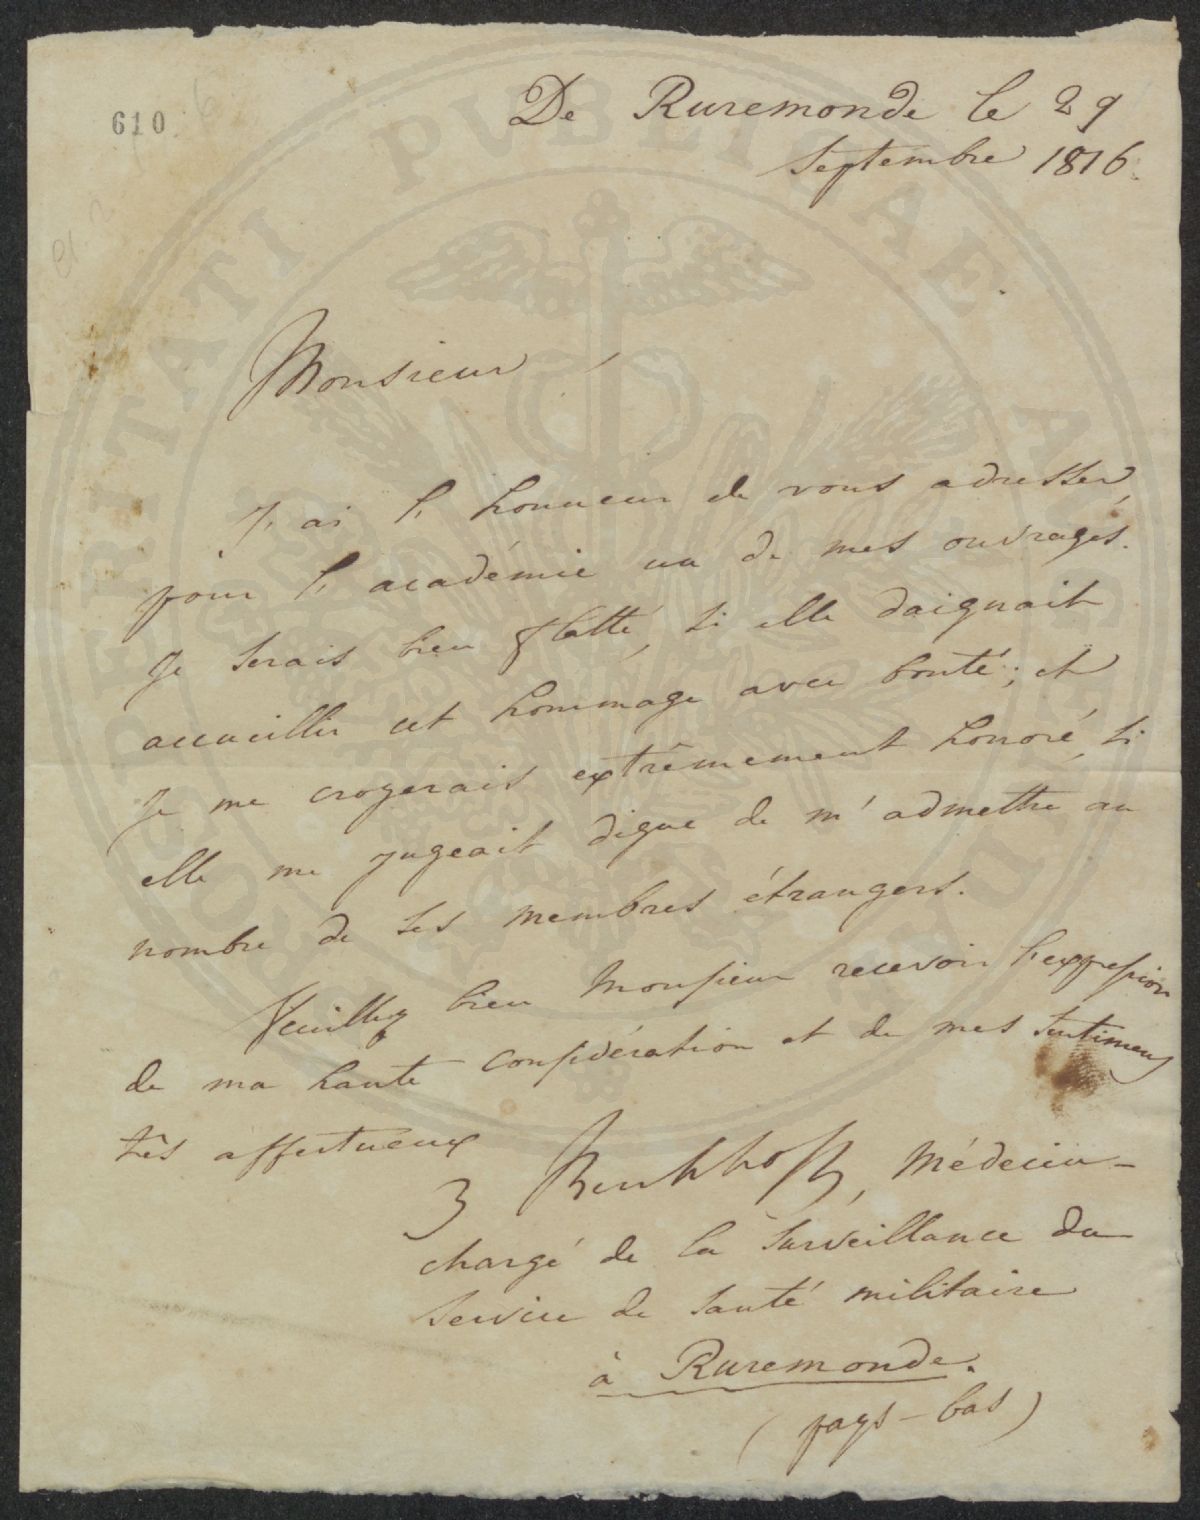 610
De Ruremonde le 29
Septembre 1816.
Monsieur,
J'ai l'honneur de vous adresser,
pour l'académie un de mes ouvrages.
je serais bien flatté, si elle daignait
accueillir cet hommage avec bonté; et
je me croyerais extrêmement honoré, si
elle me jugeait digne de m'admettre au
nombre de ses membres étrangers.
Veuillez bien Monsieur recevoir l'expression
de ma haute considération et de mes sentimens
très affectueux
J Kerckhoffs, Médecin-
chargé de la surveillance du
service de santé militaire
à Ruremonde.
(pays-bas)
PROSPERITATI PUBLICAE AUGENDAE